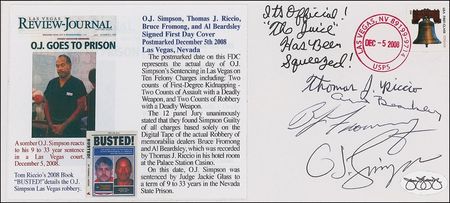 LAS VEGAS
REVIEW-JOURNAL
O.J. GOES TO PRISON
A somber O.J. Simpson reacts
to his 9 to 33 year sentence
in a Las Vegas court,
December 5, 2008.
Tom Riccio's 2008 Book
"BUSTED!" details the O.J.
Simpson Las Vegas robbery.
BUSTED!
O.J. Simpson, Thomas J. Riccio,
Bruce Fromong, and Al Beardsley
Signed First Day Cover
Postmarked December 5th 2008
Las Vegas, Nevada
The postmarked date on this FDC
represents the actual day of O.J.
Simpson's Sentencing in Las Vegas on
Ten Felony Charges including: Two
counts of First-Degree Kidnapping -
Two Counts of Assault with a Deadly
Weapon, and Two Counts of Robbery
with a Deadly Weapon.
The 12 panel Jury unanimously
stated that they found Simpson Guilty
of all charges based solely on the
Digital Tape of the actual Robbery of
memorabilia dealers Bruce Fromong
and Al Beardsley, which was recorded
by Thomas J. Riccio in his hotel room
at the Palace Station Casino.
On this date, O.J. Simpson was
sentenced by Judge Jackie Glass to
a term of 9 to 33 years in the Nevada
State Prison.
It's Official!
"The Juice"
Has Been
Squeezed!
LAS VEGAS, NV
DEC - 5 2008
USPS
Thomas J. Riccio
Beardsley
Fromong
O.J. Simpson